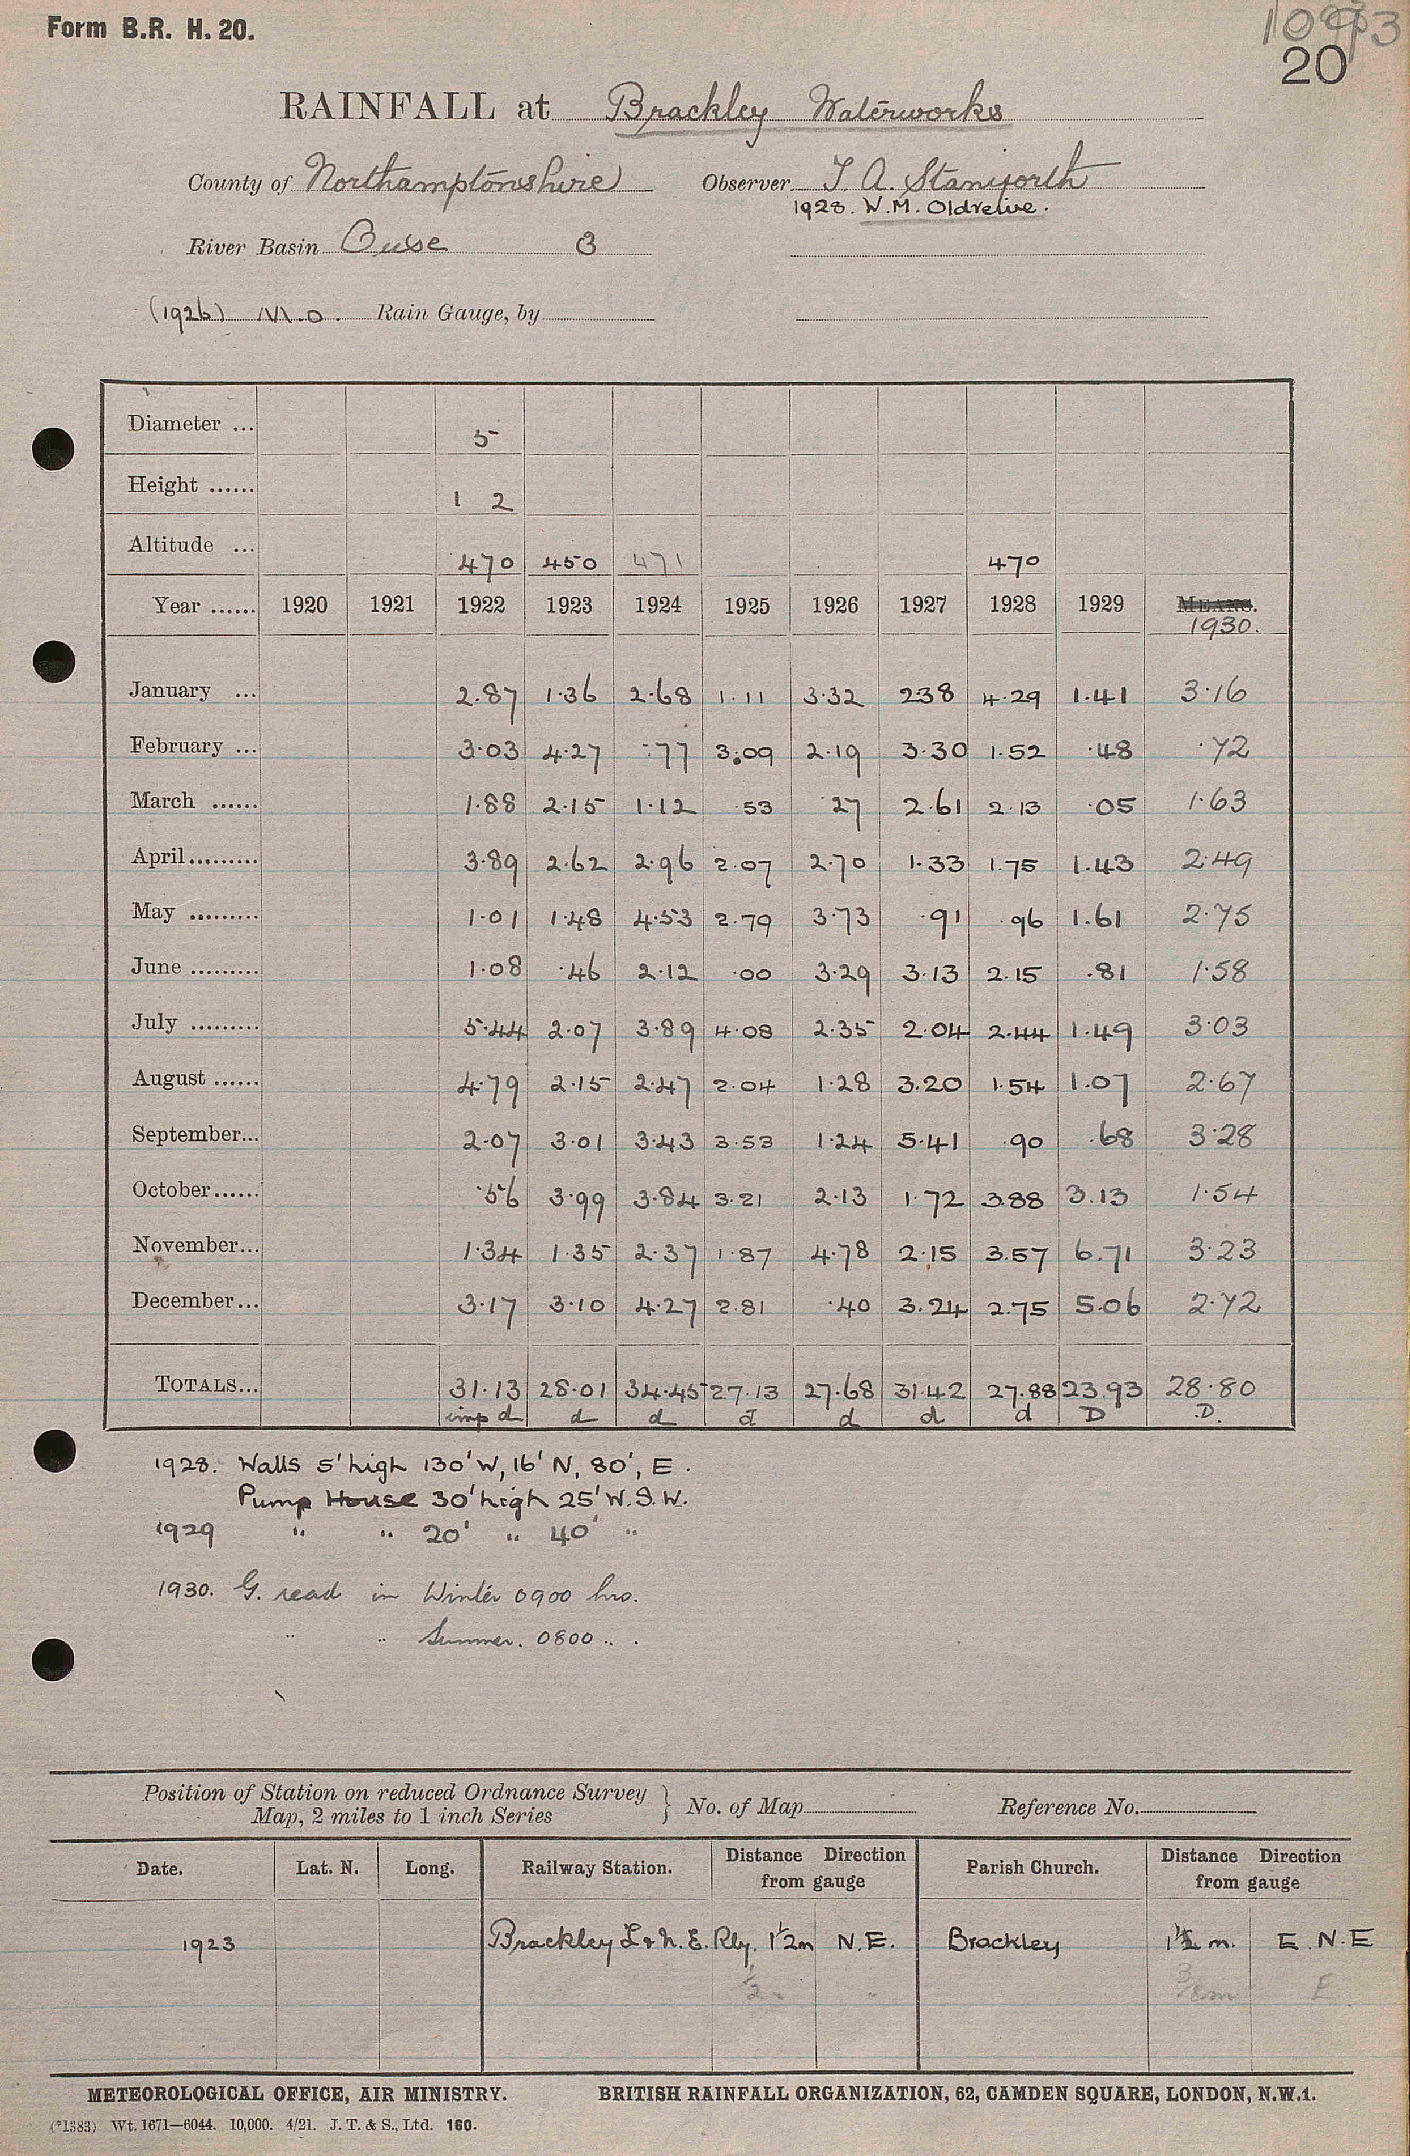 Form B.R. H. 20.
20
RAINFALL at Brackley Waterworks
County of Northamptonshire Observer T. A. Staniforth
1928. W.M. Oldreive.
River Basin Ouse 3
(1926) M.O. Rain Gauge, by
Diameter ... 5
Height ...... 1 2
Altitude ... 470 450 471 470
Year ...... 1920 1921 1922 1923 1924 1925 1926 1927 1928 1929 MEANS.
1930.
January ... 2.87 1.36 2.68 1.11 3.32 238 4.29 1.41 3.16
February ... 3.03 4.27 .77 3.09 2.19 3.30 1.52 .48 .72
March ...... 1.88 2.15 1.12 53 27 2.61 2.13 .05 1.63
April......... 3.89 2.62 2.96 2.07 2.70 1.33 1.75 1.43 2.49
May ......... 1.01 1.48 4.53 2.79 3.73 .91 .96 1.61 2.75
June ......... 1.08 .46 2.12 .00 3.29 3.13 2.15 .81 1.58
July ......... 5.44 2.07 3.89 4.08 2.35 2.04 2.44 1.49 3.03
August ...... 4.79 2.15 2.47 2.04 1.28 3.20 1.54 1.07 2.67
September... 2.07 3.01 3.43 3.53 1.24 5.41 .90 .68 3.28
October...... .56 3.99 3.84 3.21 2.13 1.72 3.88 3.13 1.54
November... 1.34 1.35 2.37 1.87 4.78 2.15 3.57 6.71 3.23
December... 3.17 3.10 4.27 2.81 .40 3.24 2.75 5.06 2.72
TOTALS... 31.13 28.01 34.45 27.13 27.68 31.42 27.88 23.93 28.80
imp d d d d d d d D D.
1928. Walls 5' high 130' W, 16' N, 80', E.
Pump House 30' high 25' W.S.W.
1929 " " 20' " 40' "
1930. G. read in Winter 0900 hrs.
" " Summer. 0800 " .
Position of Station on reduced Ordnance Survey
Map, 2 miles to 1 inch Series } No. of Map Reference No.
Date. Lat. N. Long. Railway Station. Distance Direction from gauge Parish Church. Distance Direction from gauge
1923 Brackley L & N. E. Rly. 1 1/2 m N.E. Brackley 1 1/2 m. E. N. E
1/2 " " 3/8 m E
METEOROLOGICAL OFFICE, AIR MINISTRY. BRITISH RAINFALL ORGANIZATION, 62, CAMDEN SQUARE, LONDON, N.W.1.
(*1383) Wt. 1671—6044. 10,000. 4/21. J. T. & S., Ltd. 160.